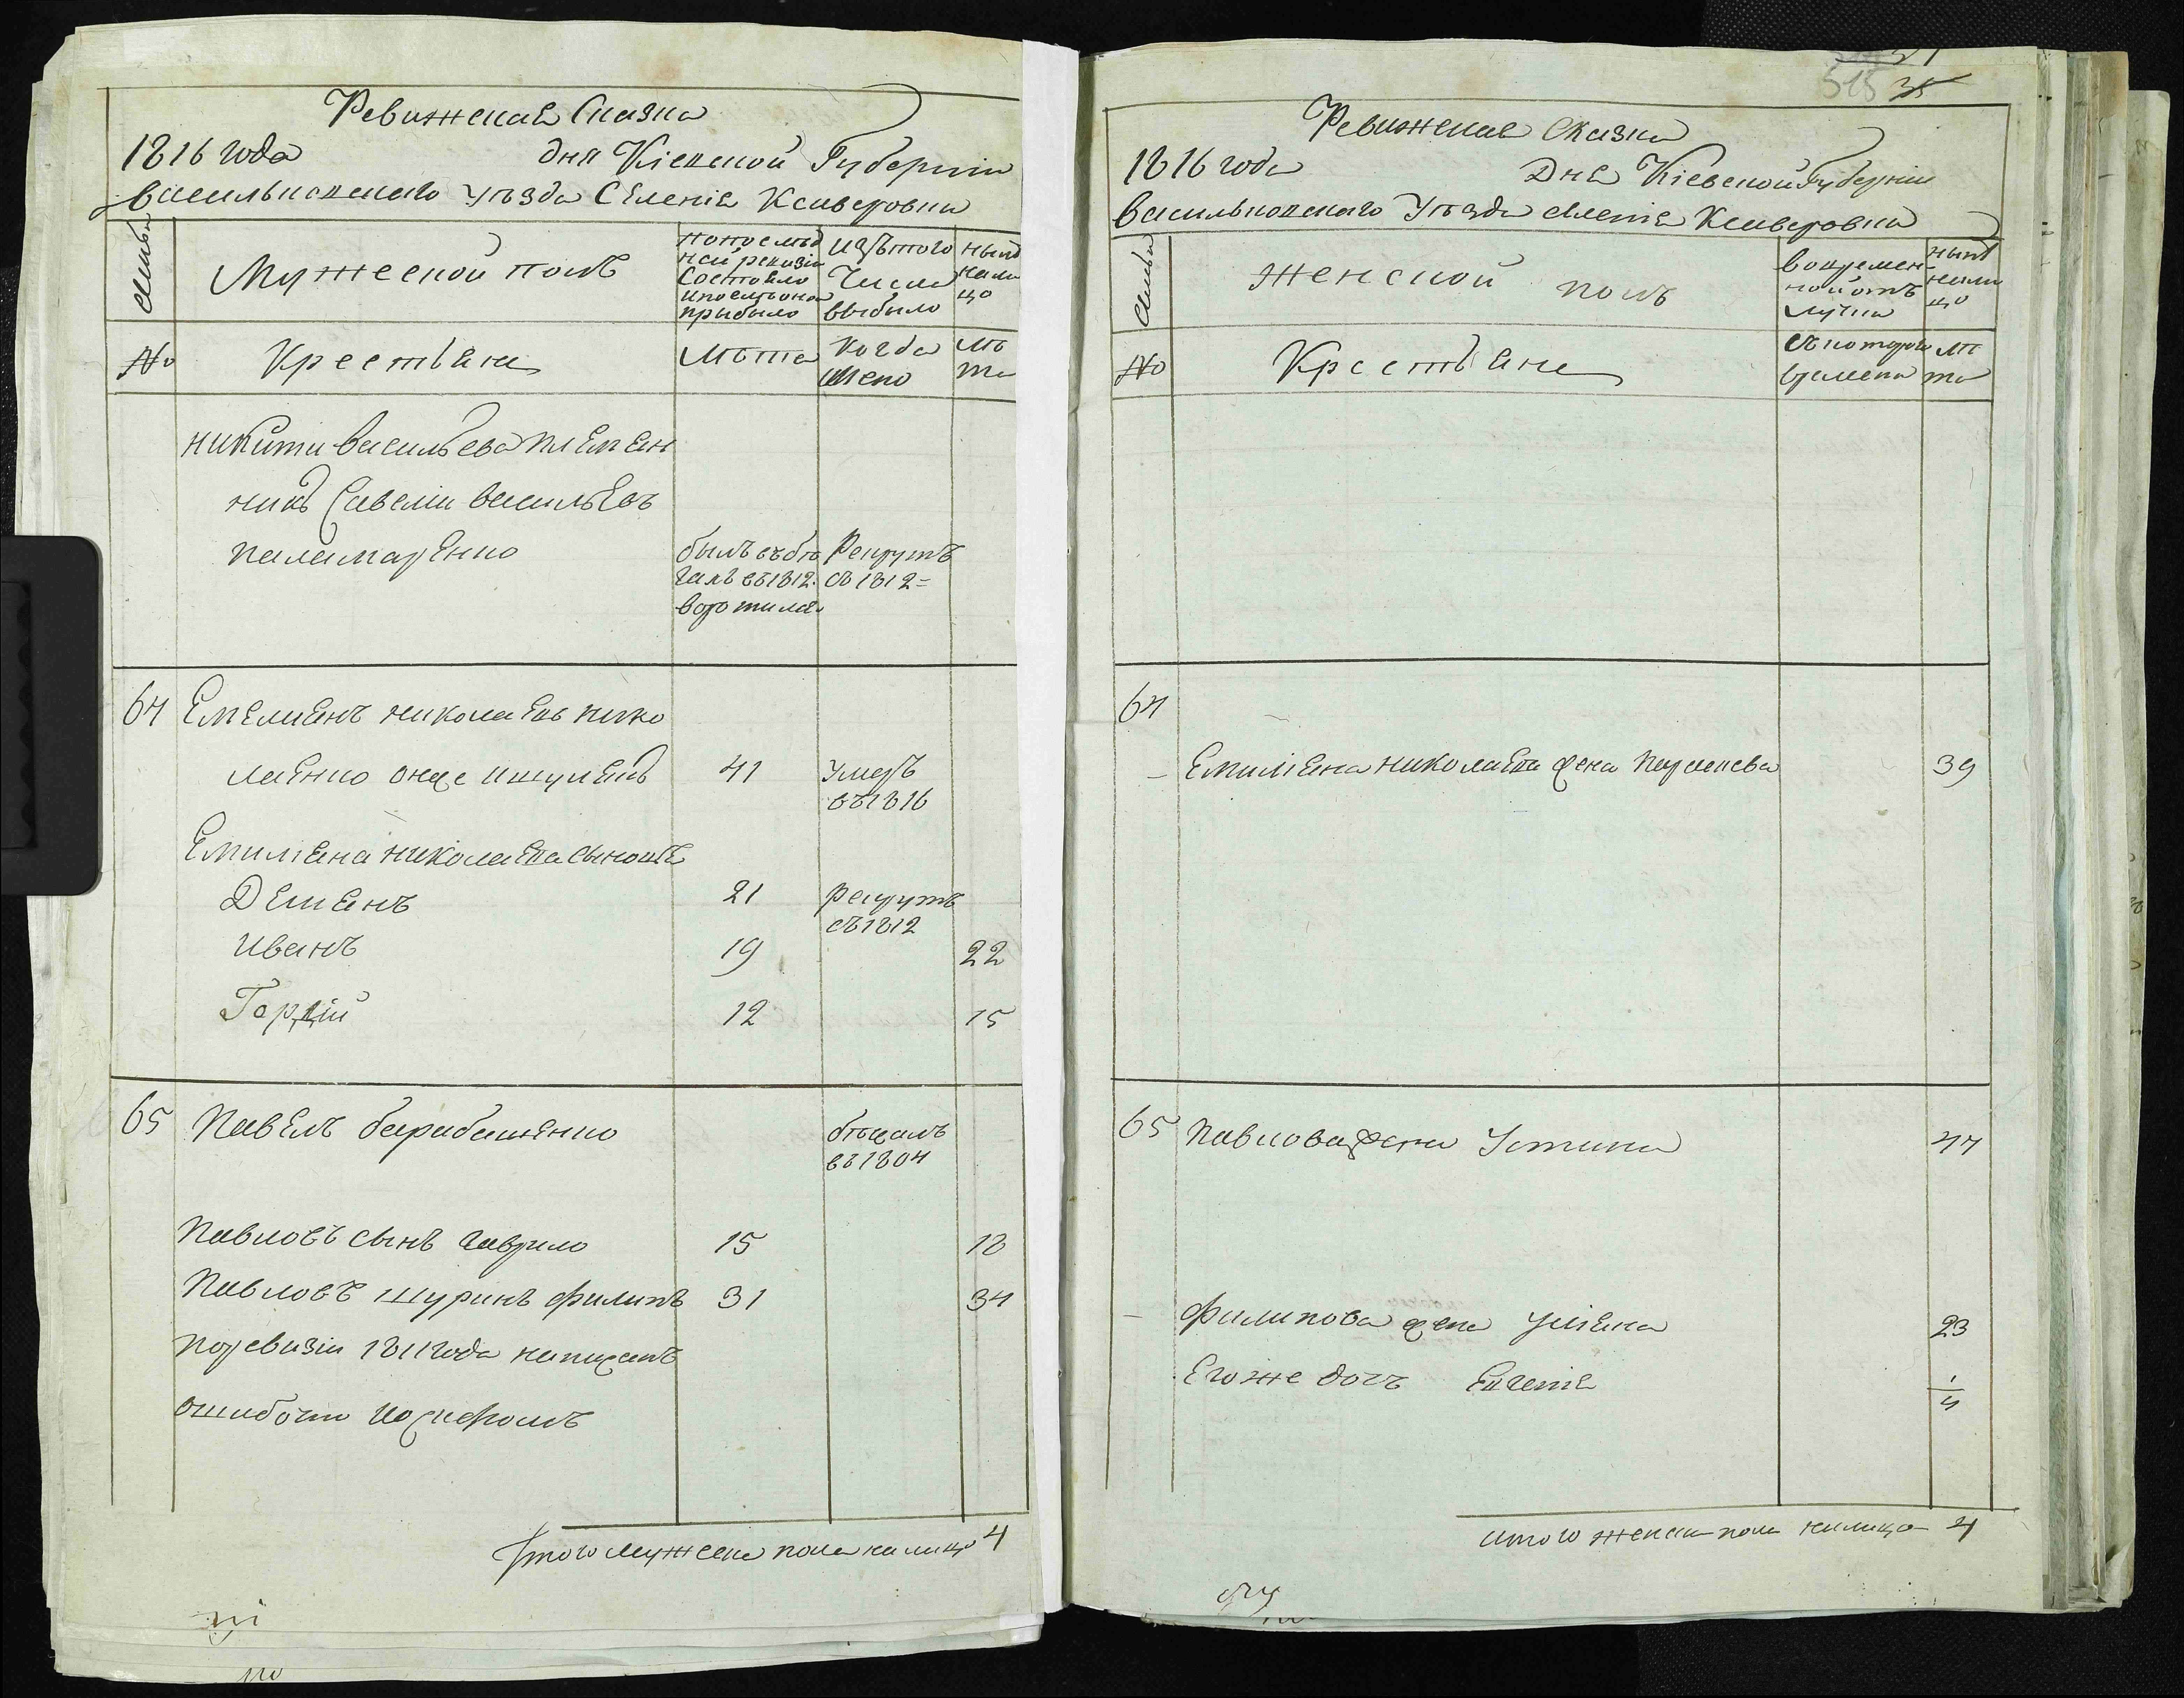 Ревижская Сказка
1816 года дня Кіевской Губерніи
васильковского уѣзда Селенія Ксаверовки
Семьи
Мужеской полъ
по последней ревизіи состояло и после оной прибыло
изъ того числа выбыло
ныне налицо
№
Крестьяне
Лѣта
Когда имено
лѣта
никити васильева племен
никъ Савелій васильевъ
паламаренко
былъ въ бегахъ въ 1812 воротился
Рекрутъ въ 1812
64
Емелианъ николаевъ нико
лаенко онже
41
умеръ въ 1816
Емилиана николаева сыновья
Демянъ
21
рекрутъ въ 1812
Иванъ
19
22
Гордій
12
15
65
Павелъ барабашенко
бежалъ въ 1804
Павловъ сынъ гаврило
15
18
Павловъ шуринъ филипъ
31
34
по ревизіи 1811 года написанъ
ошибочно Иосифомъ
Итого мужеска пола налицо 4
515 35
Ревижская Сказка
1816 года Дня Кіевской Губерніи
васильковского уѣзда селенія Ксаверовки
Семьи
женской полъ
во временной отлучки
ныне налицо
№
Крестьяне
съ которого времени
лѣта
64
Емилияна николаева жена Парасковя
39
65
Павлова жена Устина
44
филипова жена улияна
23
Его же дочъ Евгения
1/4
итого женска пола налицо 4